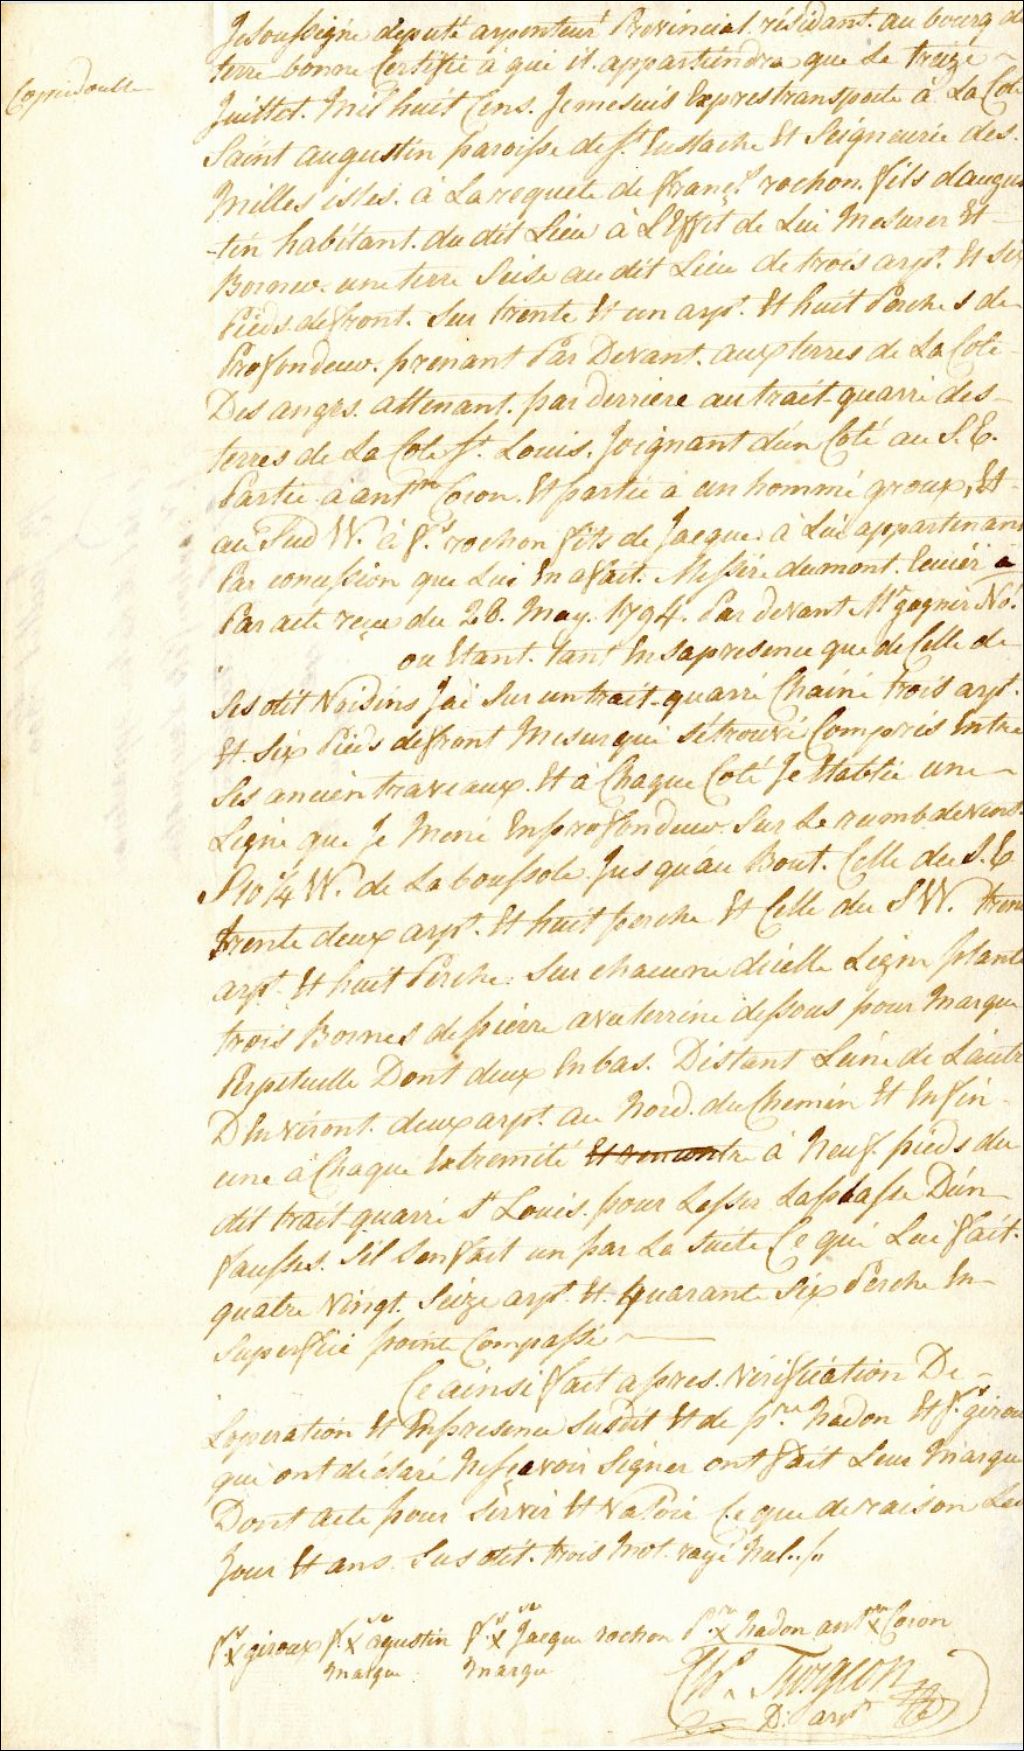 Copie doublle
Je soussigné deputé arpenteur Provincial résidant au bourg de
terre bonne Certifie à qui il appartiendra que le treize
Juillet. Mil huit Cens. Je me suis Exprès transporté à La Cote
Saint augustin paroisse de St. Eustache Et Seigneurie des
Milles isles. à La requete de Franç.s rochon. fils daugus
-tin habitant. du dit Lieu à L'Effet de Lui Mesurer Et
Borner une terre Seise au dit Lieu de trois arpt. Et six
Pieds. de front. Sur trente Et un arpt. Et huit Perches de
Profondeur. prenant Par Devant. aux terres de La Cote
Des anges. attenant. par derriere au trait-quarré des
terres de La Cote St. Louis. Joignant d'un Coté au S. E.
Partie à antne Coron. Et partie a un hommé groux, Et
au Sud W. à Fs. rochon fils de Jacque à Lui appartenant
Par concession que Lui En a fait. Messire dumont. Ecuiér à
Par acte reçu du 28. May. 1794. Par devant Mr gagnér No.
ou Etant. tant En sa presence que de Celle de
Ses dit Voisins J'ai Sur un trait-quarré Chainé trois arpt.
Et. Six Pieds de front Mesur qui s'étrouvé Compris Entre
Ses ancién travaux. Et à Chaque Coté Je Etablie une
Ligne que Je Mené En profondeur. Sur Le rumb. de vent
S 40 1/4 W. de La boussole. Jusqu'au Bout. Celle du S. E
trente deux arpt. Et huit perche Et Celle du S W. trente
arpt. Et huit Perche. Sur chacune d'icelle Ligne planté
trois Bornes de pierre avec terrine dessous pour Marque
Perpetuelle Dont deux En bas. Distant L'une de L'autre
D'Environt. deux arpt. au Nord. du Chemin Et Enfin
une à Chaque Extremité Et à Neuf. pieds du
dit trait quarré St Louis. pour Lesser La plasse D'un
Faussés. S'il s'en fait un par La suite Ce qui Lui fait.
quatre Vingt. Seize arpt. Et. quarante Six Perche En
Superficie pointe Compassé
Ce ainsi fait apres. Vérification De
Loperation Et En presence Susdit Et de prre Nadon Et Fs. giroux
qui ont déclaré Ne sçavoir Signer ont fait Leur Marque
Dont acte pour Servir Et Valoir Ce que de raison Les
Jour Et ans. Susdit. trois Mot. rayé Nul.
Fs X giroux F. X agustin F. X Jacque rochon P. X Nadon ant X Coron
Marque Marque
Turgeon
D. arpr